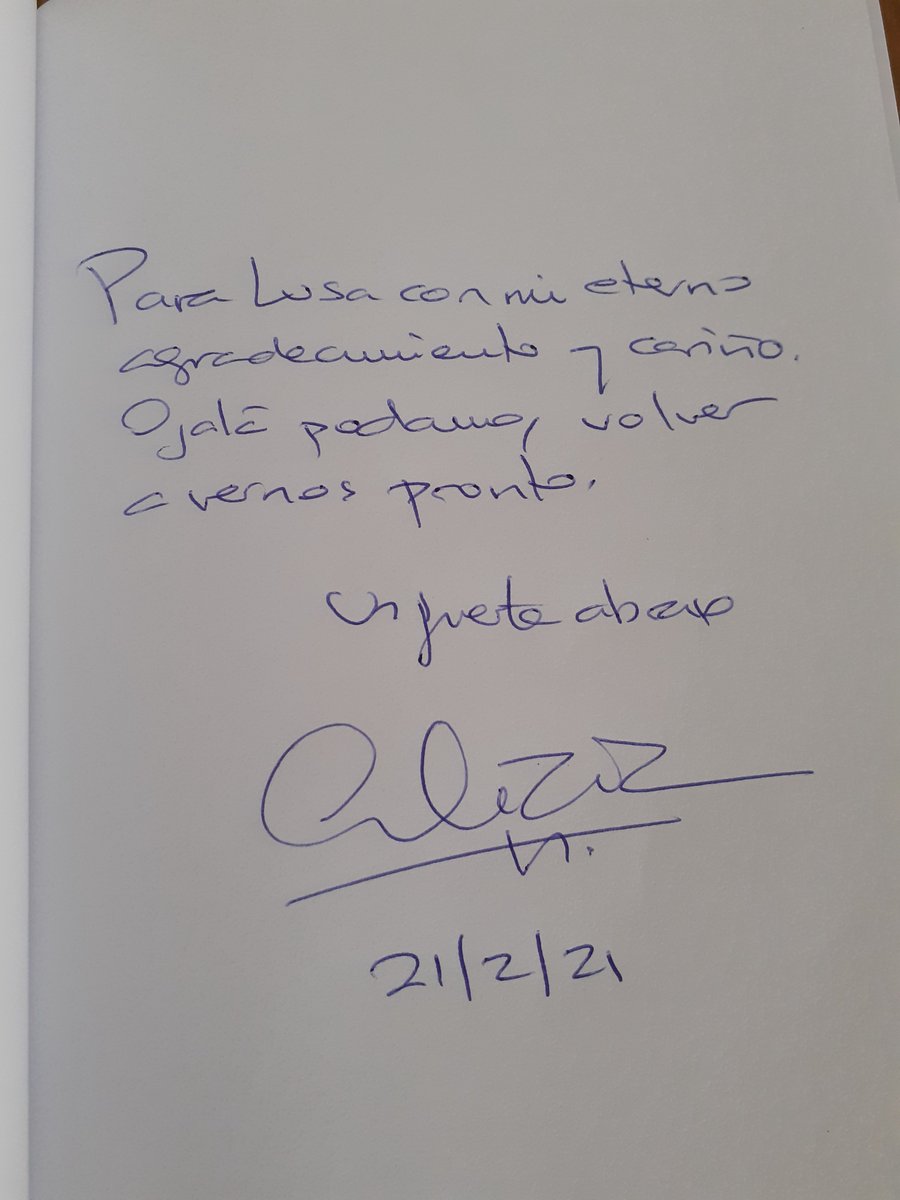 Para Lusa con mi eterno
agradecimiento y cariño.
Ojalá podamos volver
a vernos pronto.
Un fuerte abrazo
21/2/21